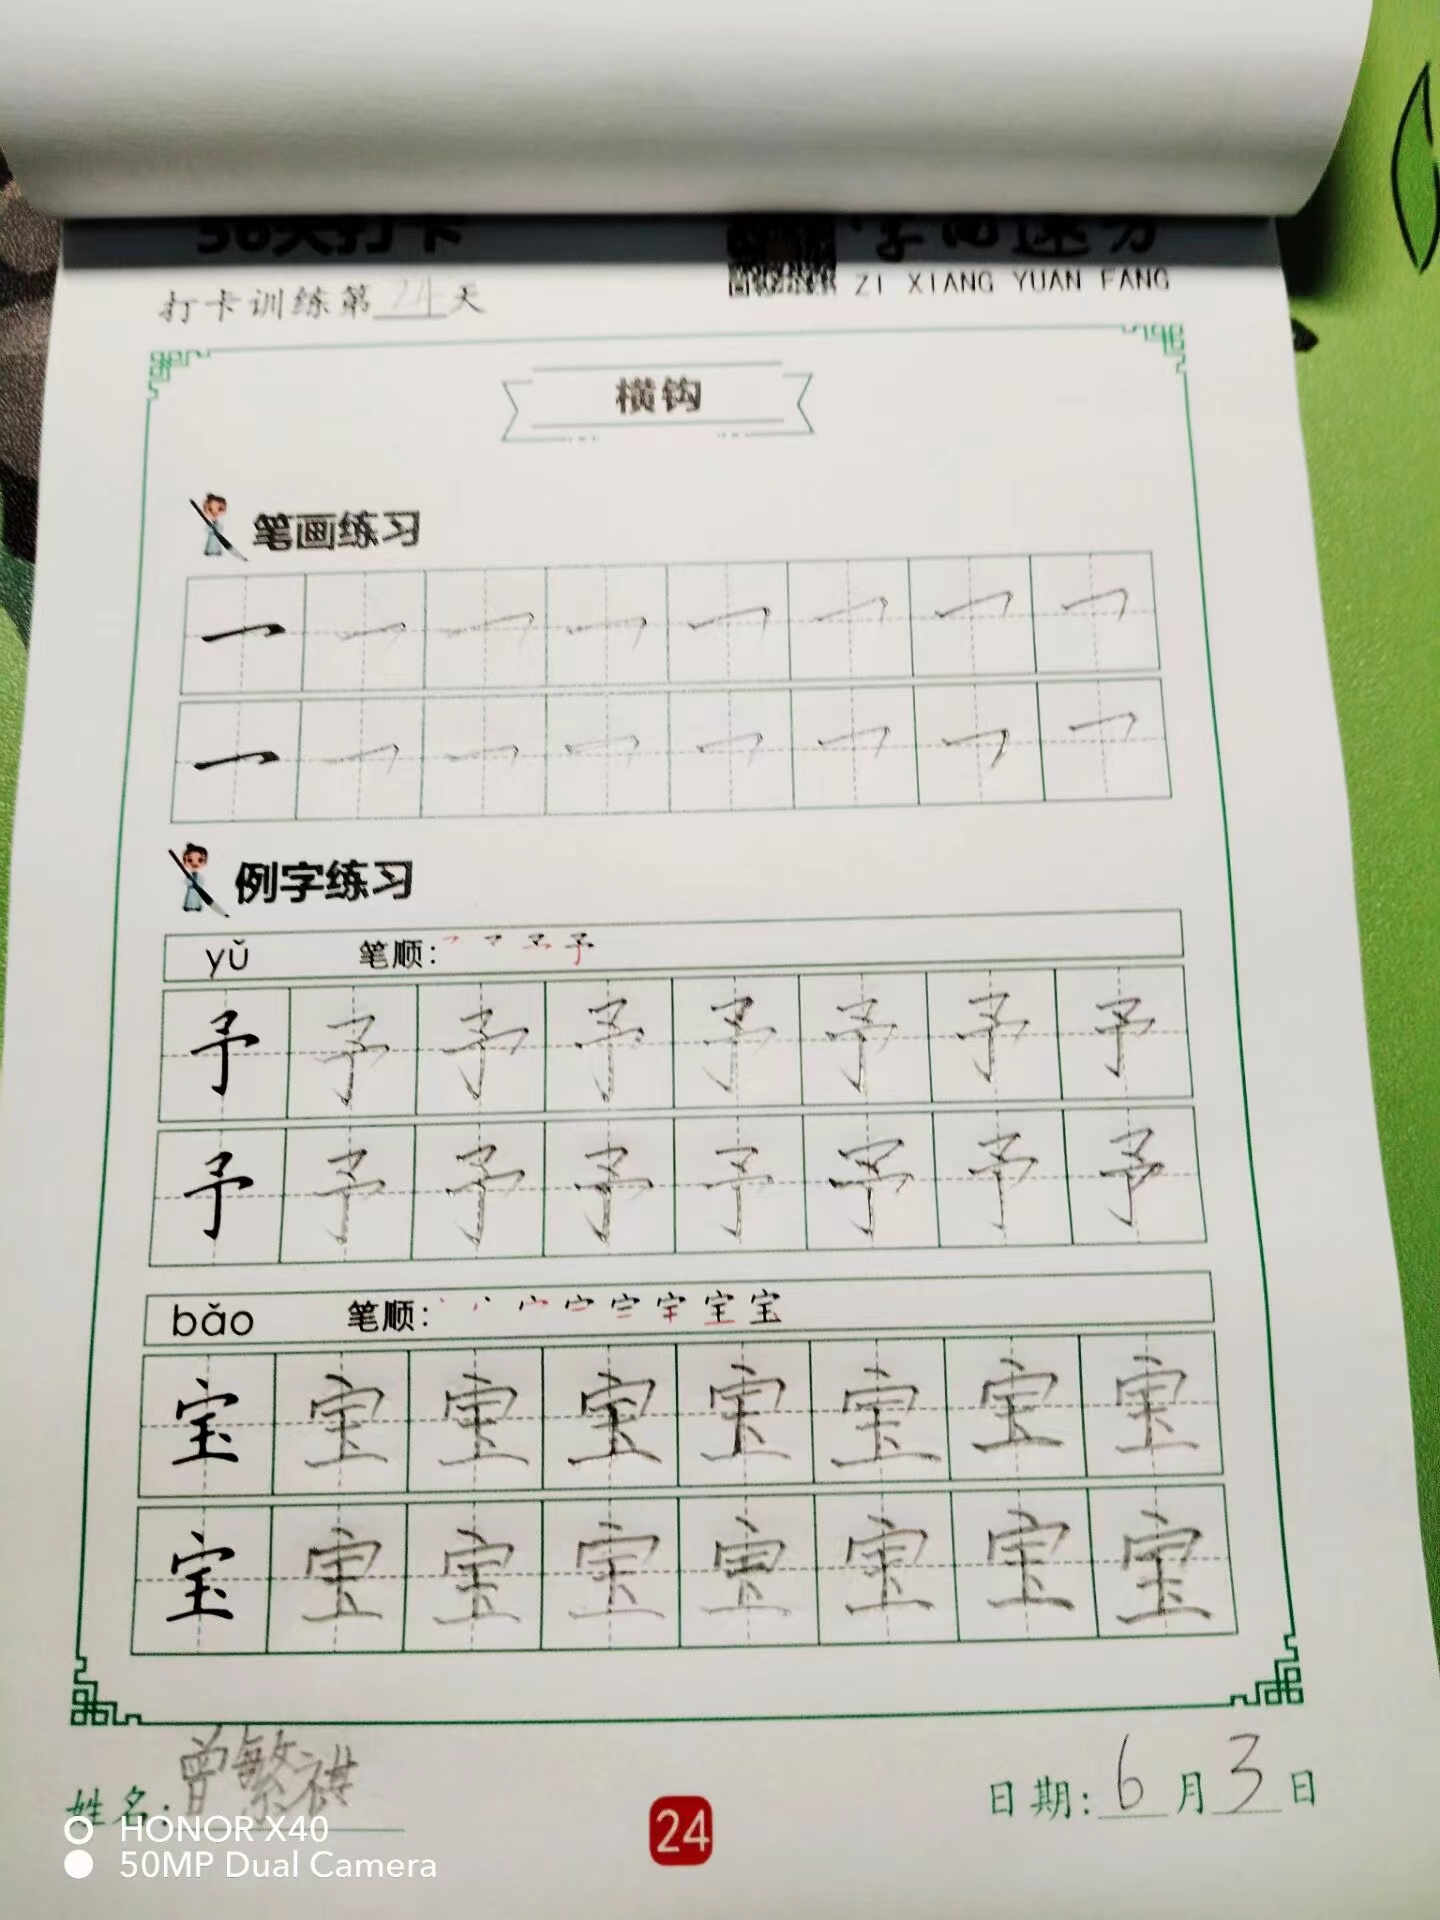 打卡训练第24天
ZI XIANG YUAN FANG
横钩
笔画练习
例字练习
yǔ 笔顺:
予 予 予 予 予 予 予 予
予 予 予 予 予 予 予 予
bǎo 笔顺:
宝 宝 宝 宝 宝 宝 宝 宝
宝 宝 宝 宝 宝 宝 宝 宝
姓名:曾繁祺
24
日期:6月3日
HONOR X40
50MP Dual Camera